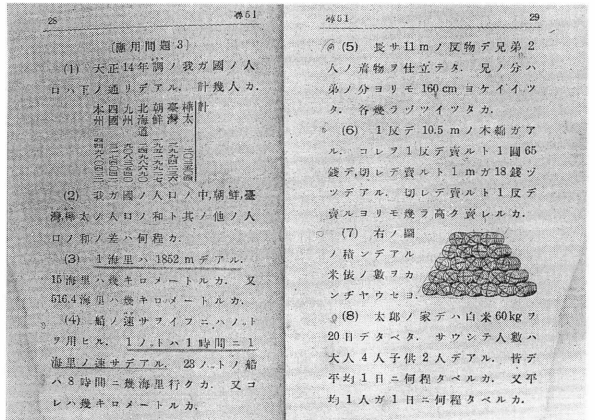 28
尋51
〔應用問題 3〕
(1) 大正14年調ノ我ガ國ノ人
口ハ下ノ通リデアル. 計幾人カ.
本州
四國
九州
北海道
朝鮮
臺灣
樺太
計
(2) 我ガ國ノ人口ノ中,朝鮮,臺
灣,樺太ノ人口ノ和ト其ノ他ノ人
口ノ和ノ差ハ何程カ.
(3) 1海里ハ 1852 m デアル.
15海里ハ幾キロメートルカ. 又
516.4 海里ハ幾キロメートルカ.
(4) 船ノ速サヲイフニハノット
ヲ用ヒル. 1ノットハ1時間ニ1
海里ノ速サデアル. 23ノットノ船
ハ8時間ニ幾海里行クカ. 又コ
レハ幾キロメートルカ.
尋51
29
(5) 長サ 11 m ノ反物デ兄弟2
人ノ着物ヲ仕立テタ. 兄ノ分ハ
弟ノ分ヨリモ 160 cm ヨケイイッ
タ. 各幾ラヅツイッタカ.
(6) 1反デ 10.5 m ノ木綿ガア
ル. コレヲ1反デ賣ルト1圓65
錢デ,切レデ賣ルト1mガ18錢ヅ
ツデアル. 切レデ賣ルト1反デ
賣ルヨリモ幾ラ高ク賣レルカ.
(7) 右ノ圖
ノ積ンデアル
米俵ノ數ヲカ
ンヂヤウセヨ.
(8) 太郎ノ家デハ白米 60 kg ヲ
20日デタベタ. サウシテ人數ハ
大人4人子供2人デアル. 皆デ
平均1日ニ何程タベルカ. 又平
均1人ガ1日ニ何程タベルカ.